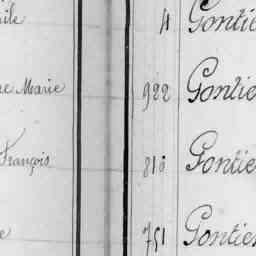 ile 4 Gontie
e Marie 922 Gontie
François 818 Gontie
e 751 Gontier